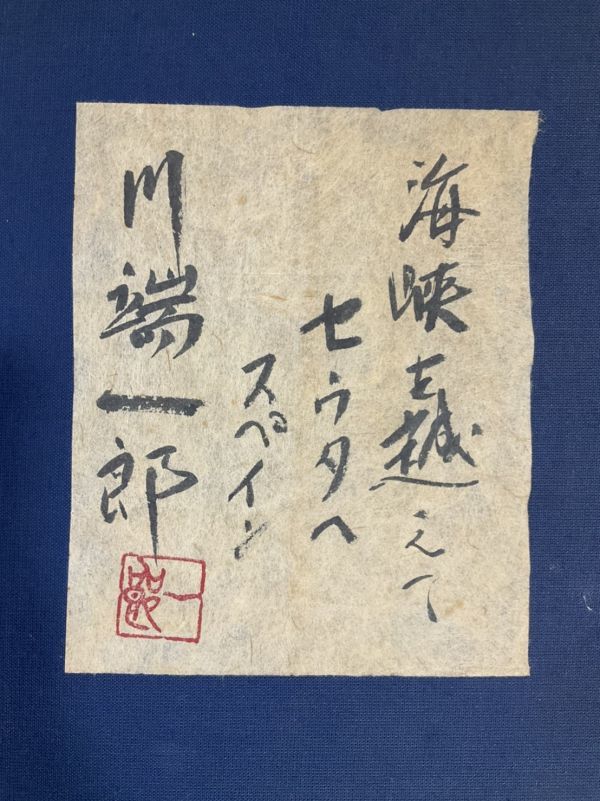 海峡を越えて
セウタへ
スペイン
川端一郎
一郎